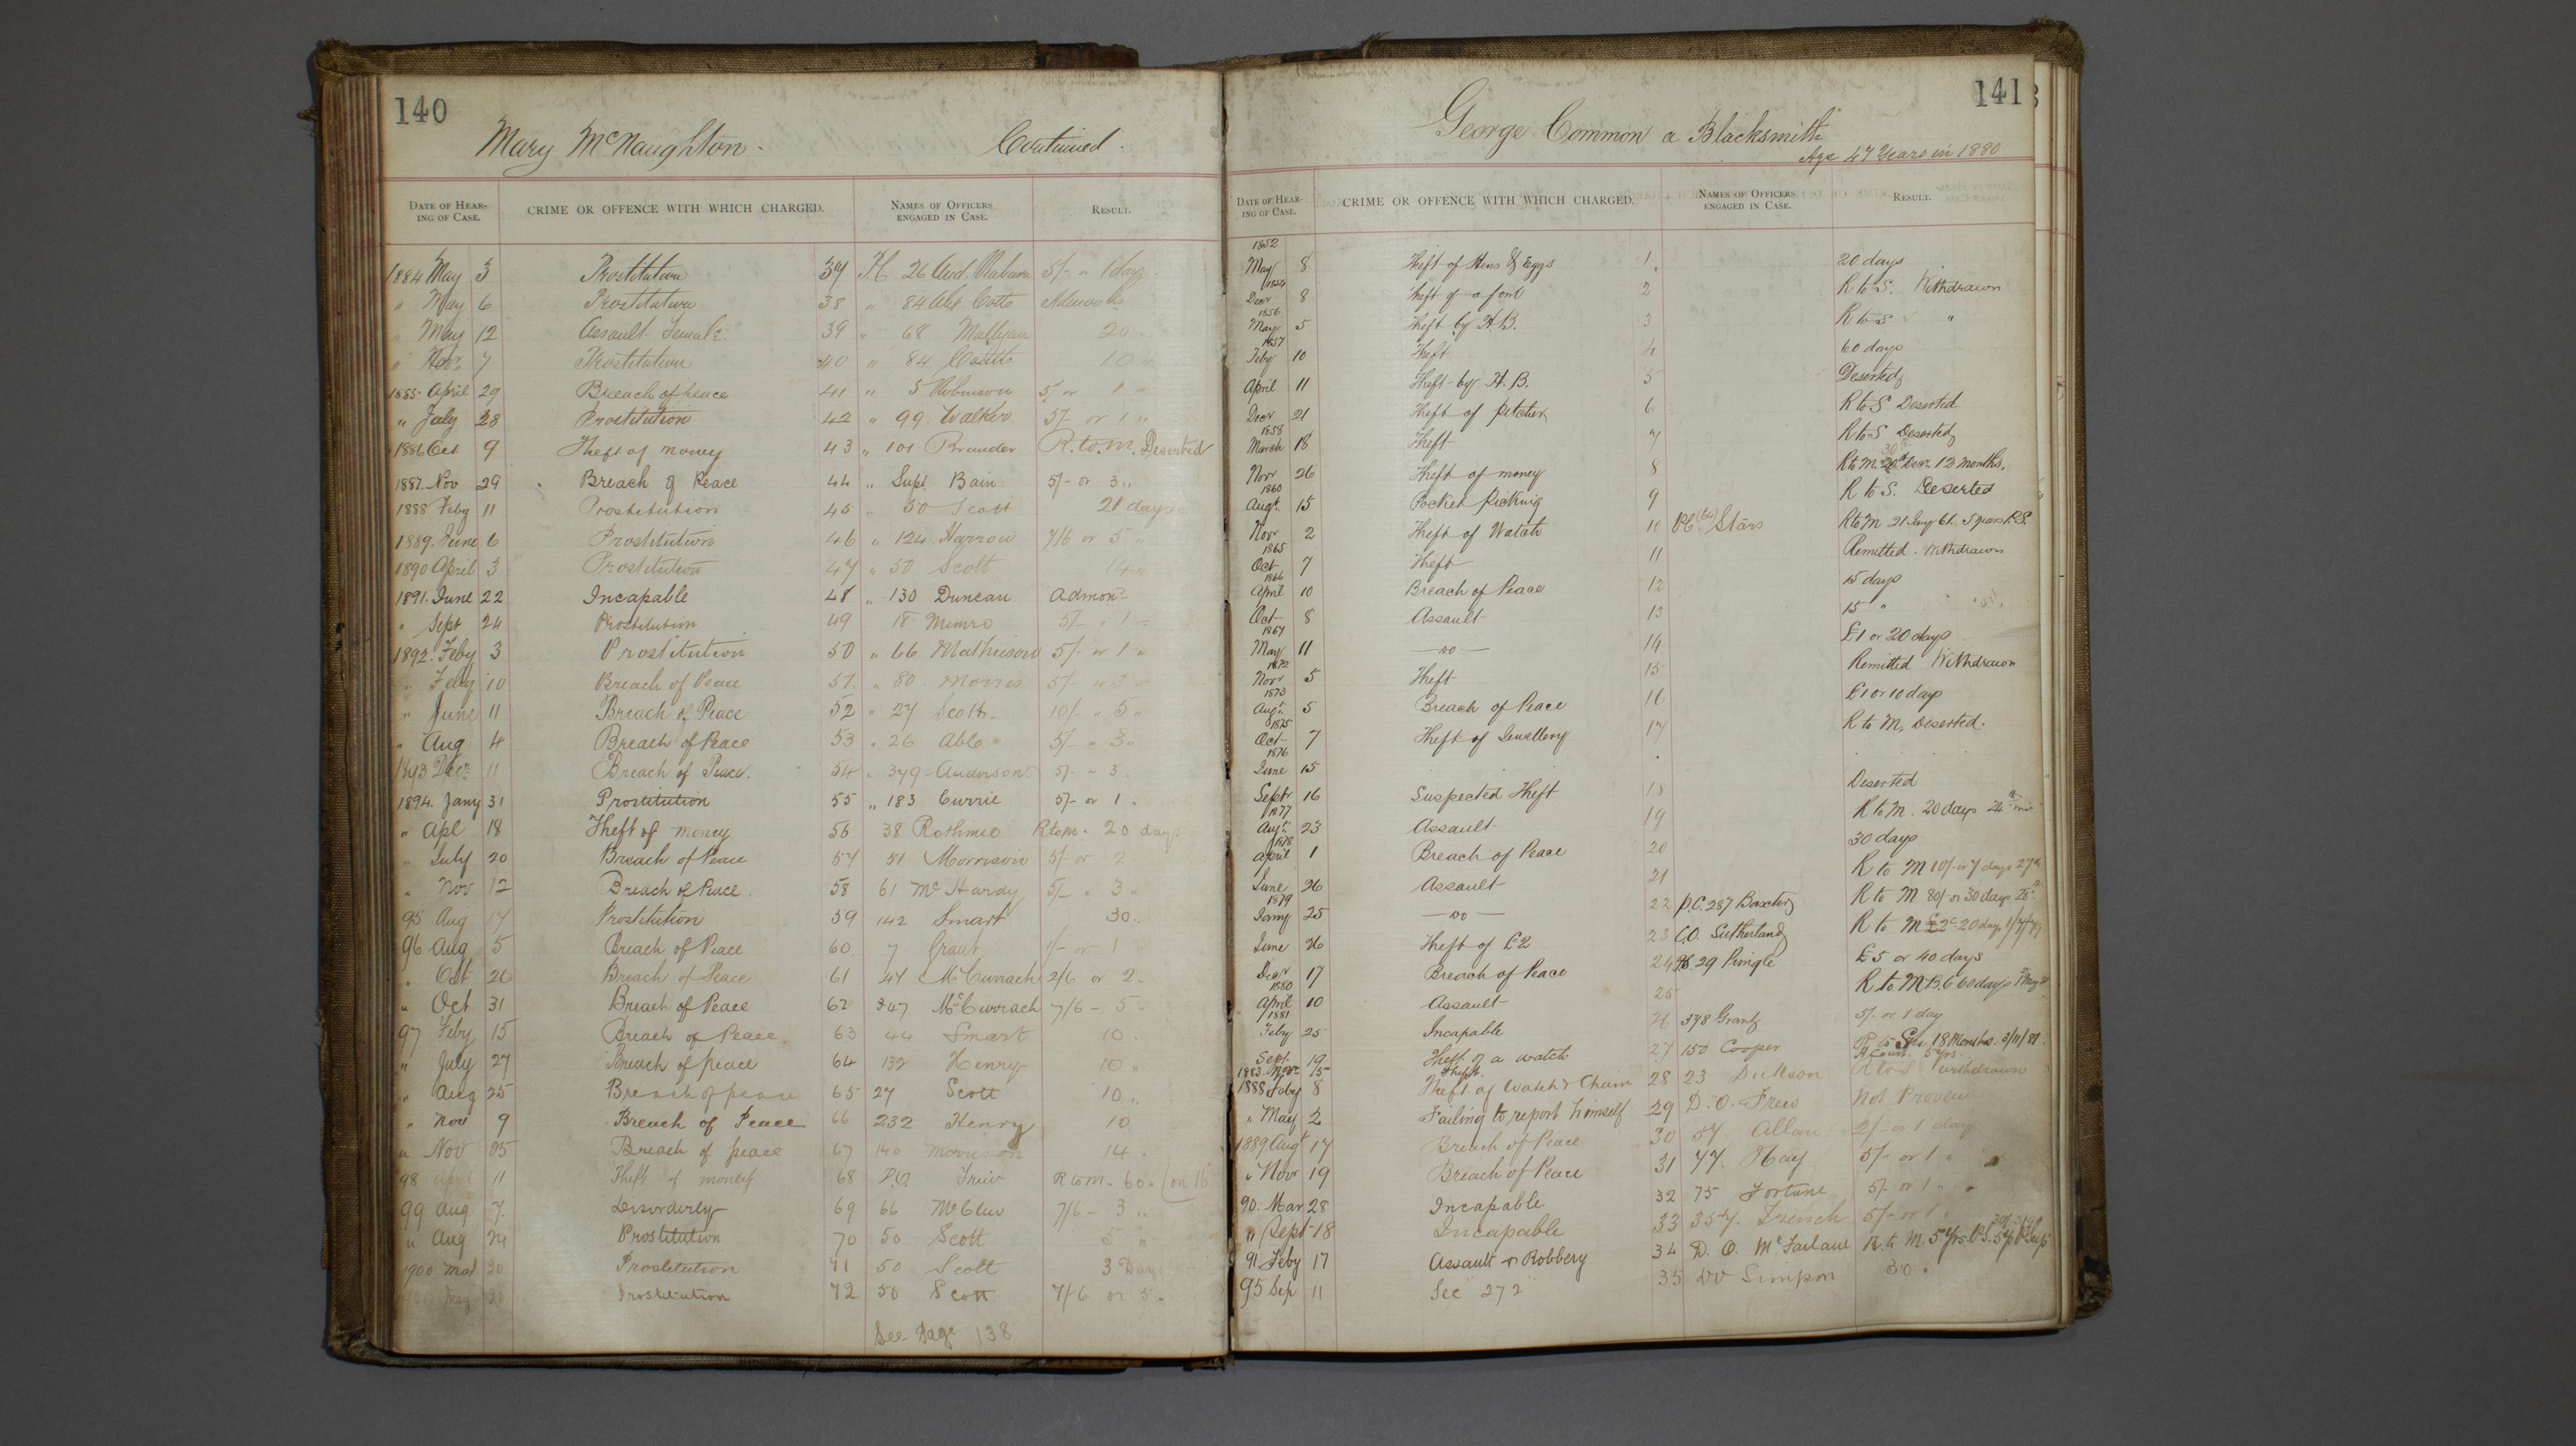 140
Mary McNaughton. Continued.
DATE OF HEAR- CRIME OR OFFENCE WITH WHICH CHARGED. NAMES OF OFFICERS RESULT.
ING OF CASE. ENGAGED IN CASE.
1884 May 3 Prostitution 37 PC. 26 And. 5/- " 1 day
" May 6 Prostitution 38 " 84 Alex
" May 12 Assault Female. 39 " 68 20 "
" Nov. 7 Prostitution 40 " 84 10 "
1885. April 29 Breach of peace 41 " 5 Robinson 5/ or 1 "
" July 28 Prostitution 42 " 99 Walker 5/- or 1 "
1886 Oct 9 Theft of money 43 " 101 R. to. M. Deserted
1887. Nov 29 Breach of Peace 44 " Supt. Bain 5/- or 3 "
1888 Feby 11 Prostitution 45 " 50 Scott 21 days
1889. June 6 Prostitution 46 " 124 Harrow 7/6 or 5 "
1890 April 3 Prostitution 47 " 50 Scott 14 "
1891. June 22 Incapable 48 " 130 Duncan Admon.
" Sept 24 Prostitution 49 18 Munro 5/- " 1 "
1892. Feby 3 Prostitution 50 " 66 Mathieson 5/- or 1 "
" Feby 10 Breach of Peace 51. " 80 Morris 5/- or 3 "
" June 11 Breach of Peace 52 " 27 Scott 10/- " 5 "
" Aug 4 Breach of Peace 53 " 26 Able 5/- " 3 "
1893 Decr. 11 Breach of Peace. 54 " 379 Anderson 5/- " 3 "
1894. Jany 31 Prostitution 55 " 183 Currie 5/- or 1 "
" Apl 18 Theft of money 56 38 Rothnie R to M. 20 days
" July 20 Breach of Peace 57 51 Morrison 5/- or 2 "
" Nov 12 Breach of Peace. 58 61 McHardy 5/- " 3 "
95 Aug 17 Prostitution 59 142 Smart 30 "
96 Aug 5 Breach of Peace 60 7 Grant or 1 "
" Oct 26 Breach of Peace 61 47 McCurrach 2/6 or 2 "
" Oct 31 Breach of Peace 62 347 McCurrach 7/6 - 5 -
97 Feby 15 Breach of Peace. 63 44 Smart 10 "
" July 27 Breach of peace 64 132 Henry 10 "
" Aug 25 Breach of peace 65 27 Scott 10 "
" Nov 9 Breach of Peace 66 232 Henry 10
" Nov 25 Breach of peace 67 140 Morrison 14 "
98 April 11 Theft of money 68 D.O. Frew R to M. 60 "
99 Aug 7 Disorderly 69 66 7/6 - 3 "
" Aug 24 Prostitution 70 50 Scott 5 "
1900 Mar 30 Prostitution 71 50 Scott 3 Days
May Prostitution 72 50 Scott 7/6 or 5 "
See Page 138
141
George Common a Blacksmith
Age 47 Years in 1880
DATE OF HEAR- CRIME OR OFFENCE WITH WHICH CHARGED. NAMES OF OFFICERS RESULT.
ING OF CASE. ENGAGED IN CASE.
1852
May 8 Theft of Hens & Eggs 1 20 days
1854
Decr 8 Theft of a fowl 2 R to S. Withdrawn
1856
May 5 Theft by H. B. 3 R to S "
1857
Feby 10 Theft 4 60 days
April 11 Theft by H. B. 5 Deserted
Decr 21 Theft of pitcher 6 R to S Deserted
1858
March 18 Theft 7 R to S Deserted
Novr 26 Theft of money 8 R to M. Decr. 12 months.
1860
Augt. 15 Pocket picking 9 R to S. Deserted
Novr 2 Theft of Watch 10 PC (64) Stars R to M 21 Jany 61. 5 years P.S.
1865
Oct 7 Theft 11 Remitted. Withdrawn
1866
April 10 Breach of Peace 12 15 days
Oct 8 Assault 13 15 "
1867
May 11 - do - 14 £1 or 20 days
1872
Novr 5 Theft 15 Remitted Withdrawn
1873
Augt. 5 Breach of Peace 16 £1 or 10 days
1875
Oct 7 Theft of Jewellery 17 R to M. Deserted.
1876
June 15
Septr 16 Suspected Theft 18 Deserted
1877
Augt. 23 Assault 19 R to M. 20 days 24th
1878
April 1 Breach of Peace 20 30 days
June 26 Assault 21 R to M 10/- or 7 days 27th
1879
Jany 25 - do - 22 P.C. 287 Baxter R to M 80/- or 30 days 28th
June 26 Theft of £2 23 C.O. Sutherland R to M 20 days 1/7/79
Decr 17 Breach of Peace 24 PC. 29 Pringle £5 or 40 days
1880
April 10 Assault 25 R to M 60 days
1881
Feby 25 Incapable 26 378 Grant 5/- or 1 day
Sept. 19 Theft of a watch 27 150 Cooper 18 Months.
1883. Novr 15 Theft. H Court. 5 yrs.
1888 Feby 8 Theft of Watch & Chain 28 23 Dickson R to S withdrawn
" May 2 Failing to report himself 29 D. O. Frew Not Proven
1889 Augt 17 Breach of Peace 30 57. Allan 2/- or 1 day
" Novr 19 Breach of Peace 31 77. Hay 5/- or 1 "
90. Mar 28 Incapable 32 75 Fortune 5/- or 1 "
" Sept 18 Incapable 33 357. French 5/- or 1 "
91 Feby 17 Assault & Robbery 34 D. O. McFarlane R. to M 5 Yrs. P.S.
95 Sep 11 Sec 272 35 DO Simpson 30 "